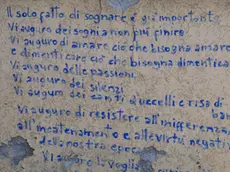 Il solo fatto di sognare è già importante
Vi auguro dei sogni a non più finire
Vi auguro di amare ciò che bisogna amare
e dimenticare ciò che bisogna dimentica
Vi auguro delle passioni
Vi auguro dei silenzi
Vi auguro dei canti d'uccelli e risa di bam
Vi auguro di resistere all'indifferenza,
all'incatenamento e alle virtù negativ
della nostra epoca
Vi auguro la voglia